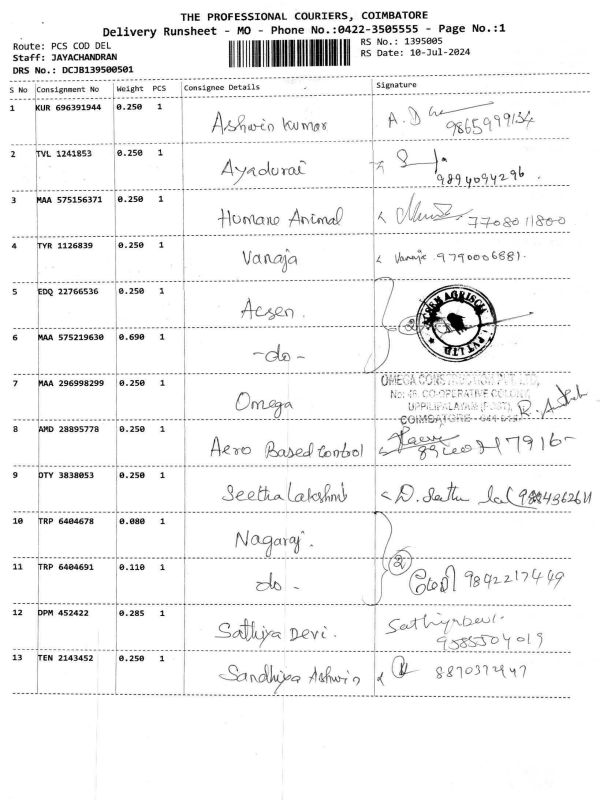 THE PROFESSIONAL COURIERS, COIMBATORE
Delivery Runsheet - MO - Phone No.:0422-3505555 - Page No.:1
Route: PCS COD DEL
RS No.: 1395005
Staff: JAYACHANDRAN
RS Date: 10-Jul-2024
DRS No.: DCJB139500501
S No Consignment No Weight PCS Consignee Details Signature
1 KUR 696391944 0.250 1 Ashwin Kumar A.D 9865999134
2 TVL 1241853 0.250 1 Ayadurai 9894094296.
3 MAA 575156371 0.250 1 Humane Animal 7708011800
4 TYR 1126839 0.250 1 Vanaja Vanaja 9790006881.
5 EDQ 22766536 0.250 1 Acsen.
6 MAA 575219630 0.690 1 -do- 2
ACSEN AGRISCIA PVT LTD
7 MAA 296998299 0.250 1 Omega
OMEGA CONSTRUCTION PVT. LTD,
No: 48, CO-OPERATIVE COLONY
UPPILIPALAYAM (POST),
COIMBATORE - 641 015
8 AMD 28895778 0.250 1 Aero Based Control
9 DTY 3838053 0.250 1 Seetha Lakshmi
10 TRP 6404678 0.080 1 Nagaraj.
11 TRP 6404691 0.110 1 do - 2 9842217449
12 DPM 452422 0.285 1 Sathiya Devi. Sathiya Devi. 9585504019
13 TEN 2143452 0.250 1 Sandhiya Ashwin 8870372947